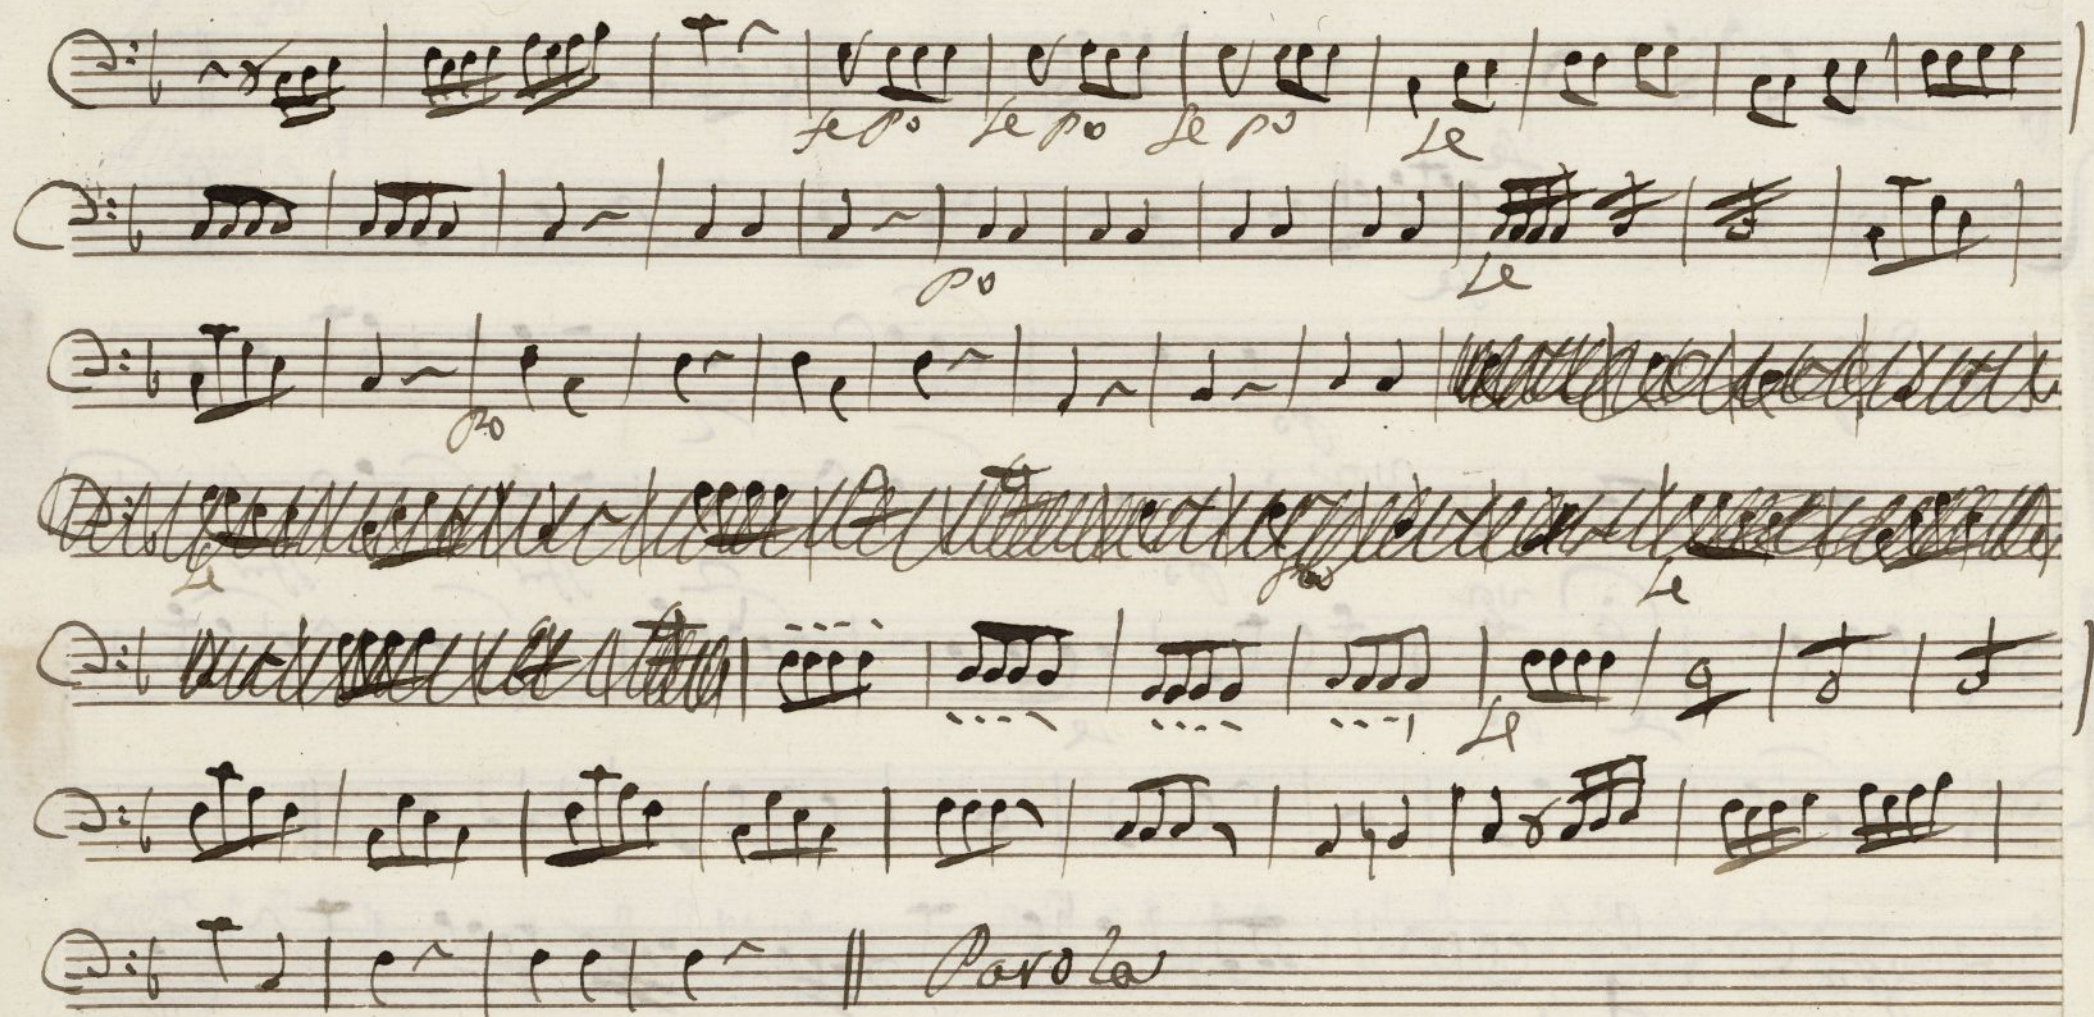 fe po fe po fe po fe
po fe
po
fe fe
fe
Parola